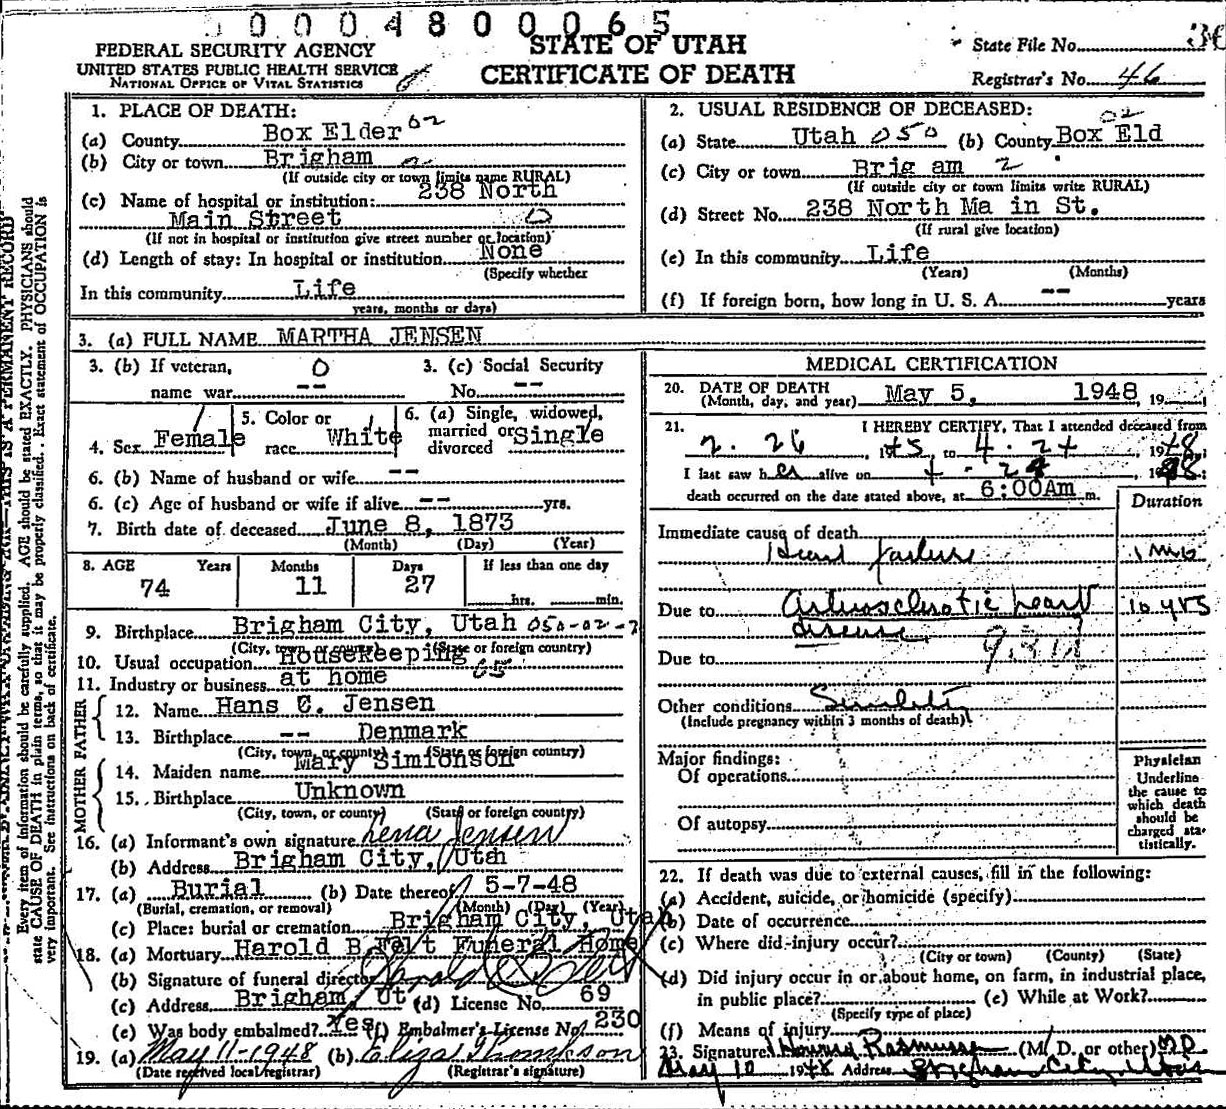 0004800065
FEDERAL SECURITY AGENCY
UNITED STATES PUBLIC HEALTH SERVICE
NATIONAL OFFICE OF VITAL STATISTICS
STATE OF UTAH
CERTIFICATE OF DEATH
State File No.
Registrar's No. 46
Every item of information should be carefully supplied. AGE should be stated EXACTLY. PHYSICIANS should
state CAUSE OF DEATH in plain terms, so that it may be properly classified. Exact statement of OCCUPATION is
very important. See instructions on back of certificate.
1. PLACE OF DEATH:
(a) County Box Elder 02
(b) City or town Brigham
(If outside city or town limits name RURAL)
(c) Name of hospital or institution: 238 North
Main Street 0
(If not in hospital or institution give street number or location)
(d) Length of stay: In hospital or institution None
(Specify whether
In this community Life
years, months or days)
2. USUAL RESIDENCE OF DECEASED:
02
(a) State Utah 050 (b) County Box Eld
(c) City or town Brig am 2
(If outside city or town limits write RURAL)
(d) Street No. 238 North Ma in St.
(If rural give location)
(e) In this community Life
(Years) (Months)
(f) If foreign born, how long in U. S. A. -- years
3. (a) FULL NAME MARTHA JENSEN
3. (b) If veteran, 0
name war -- 
3. (c) Social Security
No. --
4. Sex Female
5. Color or
race White
6. (a) Single, widowed,
married or
divorced Single
6. (b) Name of husband or wife --
6. (c) Age of husband or wife if alive -- yrs.
7. Birth date of deceased June 8, 1873
(Month) (Day) (Year)
8. AGE Years Months Days If less than one day
74 11 27 hrs. min.
9. Birthplace Brigham City, Utah 050-02-2
(City, town, or county) (State or foreign country)
10. Usual occupation Housekeeping
11. Industry or business at home 65
FATHER
12. Name Hans C. Jensen
13. Birthplace -- Denmark
(City, town, or county) (State or foreign country)
MOTHER
14. Maiden name Mary Simionson
15. Birthplace Unknown
(City, town, or county) (State or foreign country)
16. (a) Informant's own signature Lena Jensen
(b) Address Brigham City, Utah
17. (a) Burial (b) Date thereof 5-7-48
(Burial, cremation, or removal) (Month) (Day) (Year)
(c) Place: burial or cremation Brigham City, Utah
18. (a) Mortuary Harold B Felt Funeral Home
(b) Signature of funeral director Harold B Felt
(c) Address Brigham, Ut. (d) License No. 69
(e) Was body embalmed? Yes (f) Embalmer's License No. 230
19. (a) May 11-1948 (b) Eliza Thompson
(Date received local registrar) (Registrar's signature)
MEDICAL CERTIFICATION
20. DATE OF DEATH
(Month, day, and year) May 5, 1948, 19
21. I HEREBY CERTIFY, That I attended deceased from
2. 26, 1945, to 4. 24 1948;
I last saw her alive on 4 - 24 1948;
death occurred on the date stated above, at 6:00Am m.
Duration
Immediate cause of death
Heart failure
Due to Arteriosclerotic heart 10 yrs
disease
Due to
Other conditions Senility
(Include pregnancy within 3 months of death)
Major findings:
Of operations
Of autopsy
Physician
Underline
the cause to
which death
should be
charged sta-
tistically.
22. If death was due to external causes, fill in the following:
(a) Accident, suicide, or homicide (specify)
(b) Date of occurrence
(c) Where did injury occur?
(City or town) (County) (State)
(d) Did injury occur in or about home, on farm, in industrial place,
in public place? (e) While at Work?
(Specify type of place)
(f) Means of injury
23. Signature Rasmussen (M. D. or other) M.D.
May 10 1948 Address Brigham City, Utah